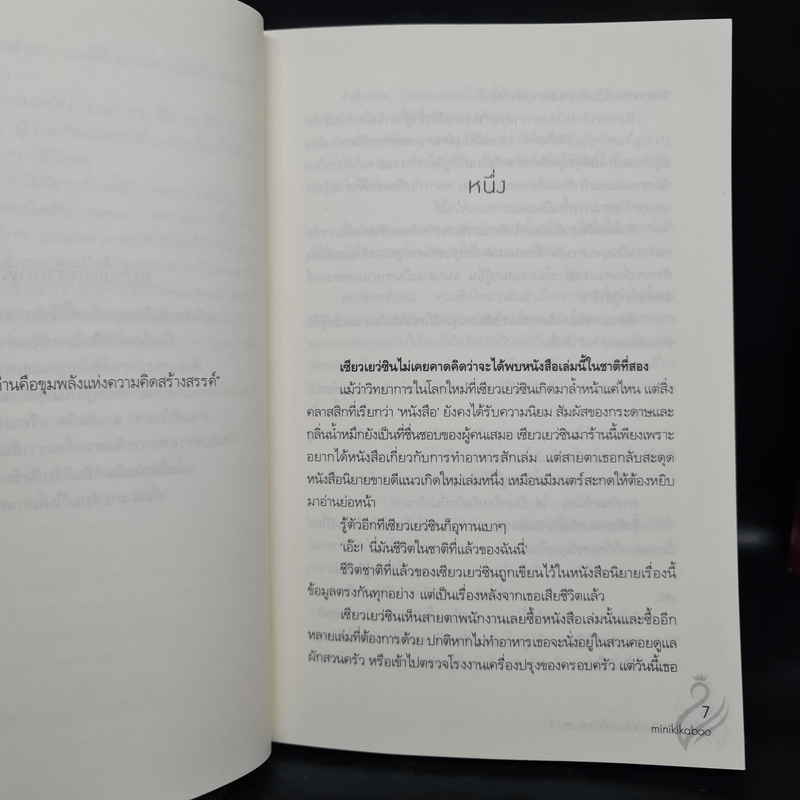 ่านคือขุมพลังแห่งความคิดสร้างสรรค์"
หนึ่ง
เซียวเยว่ซินไม่เคยคาดคิดว่าจะได้พบหนังสือเล่มนี้ในชาติที่สอง
แม้ว่าวิทยาการในโลกใหม่ที่เซียวเยว่ซินเกิดมาล้ำหน้าแค่ไหน แต่สิ่ง
คลาสสิกที่เรียกว่า 'หนังสือ' ยังคงได้รับความนิยม สัมผัสของกระดาษและ
กลิ่นน้ำหมึกยังเป็นที่ชื่นชอบของผู้คนเสมอ เซียวเยว่ซินมาร้านนี้เพียงเพราะ
อยากได้หนังสือเกี่ยวกับการทำอาหารสักเล่ม แต่สายตาเธอกลับสะดุด
หนังสือนิยายขายดีแนวเกิดใหม่เล่มหนึ่ง เหมือนมีมนตร์สะกดให้ต้องหยิบ
มาอ่านย่อหน้า
รู้ตัวอีกทีเซียวเยว่ซินก็อุทานเบาๆ
'เอ๊ะ! นี่มันชีวิตในชาติที่แล้วของฉันนี่'
ชีวิตชาติที่แล้วของเซียวเยว่ซินถูกเขียนไว้ในหนังสือนิยายเรื่องนี้
ข้อมูลตรงกันทุกอย่าง แต่เป็นเรื่องหลังจากเธอเสียชีวิตแล้ว
เซียวเยว่ซินเห็นสายตาพนักงานเลยซื้อหนังสือเล่มนั้นและซื้ออีก
หลายเล่มที่ต้องการด้วย ปกติหากไม่ทำอาหารเธอจะนั่งอยู่ในสวนคอยดูแล
ผักสวนครัว หรือเข้าไปตรวจโรงงานเครื่องปรุงของครอบครัว แต่วันนี้เธอ
7
minikikaboo